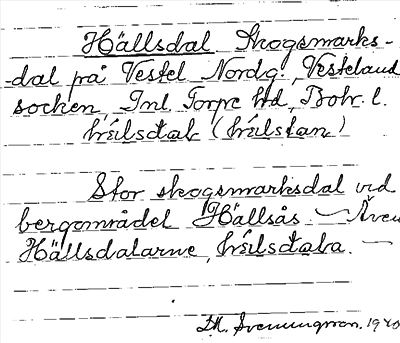 Hällsdal Skogsmarks-
dal på Vestel Nordg., Vesteland
socken, Inl. Torpe hd, Boh. l.
Stor skogsmarksdal vid
bergområdet Hällsås. — Även
Hällsdalarne,
Svenungsson. 1940